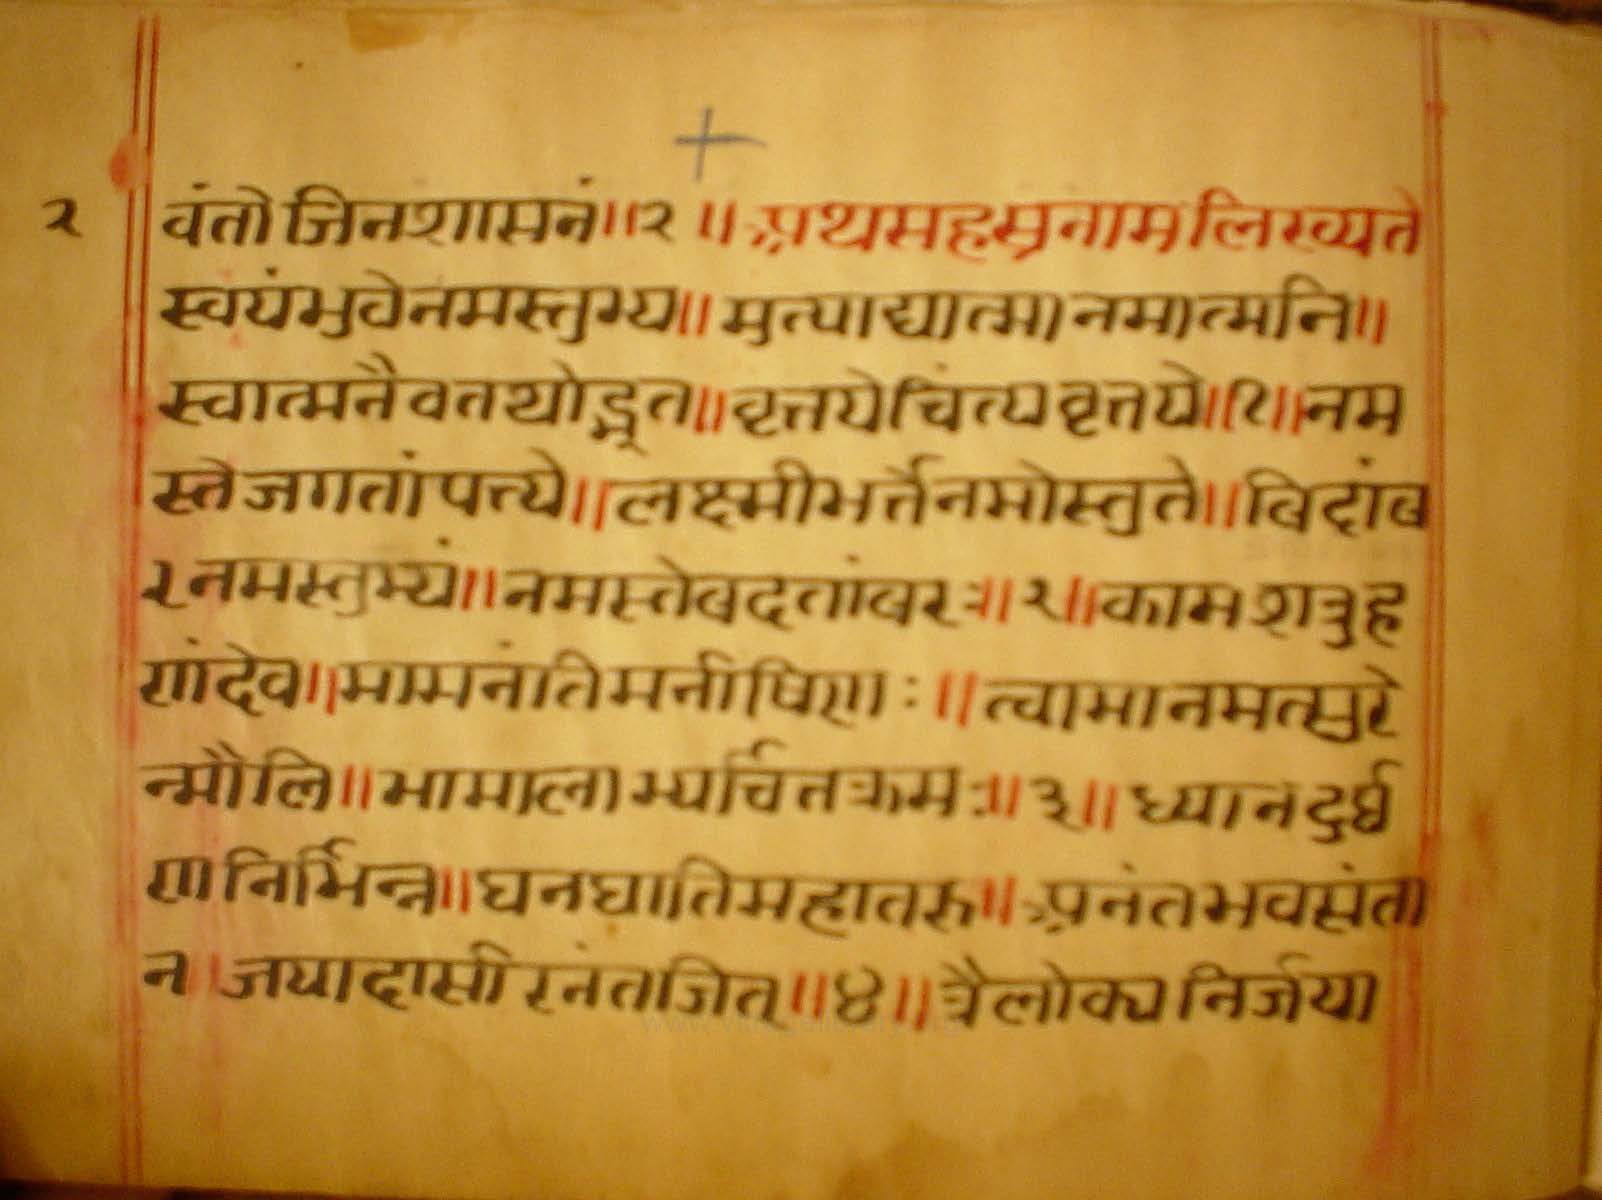 २ वंतो जिनशासनं॥२॥ अथसहस्रनामलिख्यते
स्वयंभुवेनमस्तुभ्य॥मुत्पाद्यात्मानमात्मनि॥
स्वात्मनैवतथोद्भूत॥वृत्तयेचिंत्यवृत्तये॥१॥नम
स्तेजगतांपत्त्ये॥लक्ष्मीभर्त्तेनमोस्तुते॥विदांव
रनमस्तुभ्यं॥नमस्तेवदतांवरः॥२॥कामशत्रुह
णंदेव॥मामनंतिमनीषिणः॥त्वामानमत्सुरे
न्मौलि॥भामालाभ्यर्चितक्रमः॥३॥ध्यानदुर्घ
णनिर्भिन्न॥घनघातिमहातरु॥अनंतभवसंता
न।जयादासीरनंतजित्॥४॥त्रैलोक्यनिर्जया